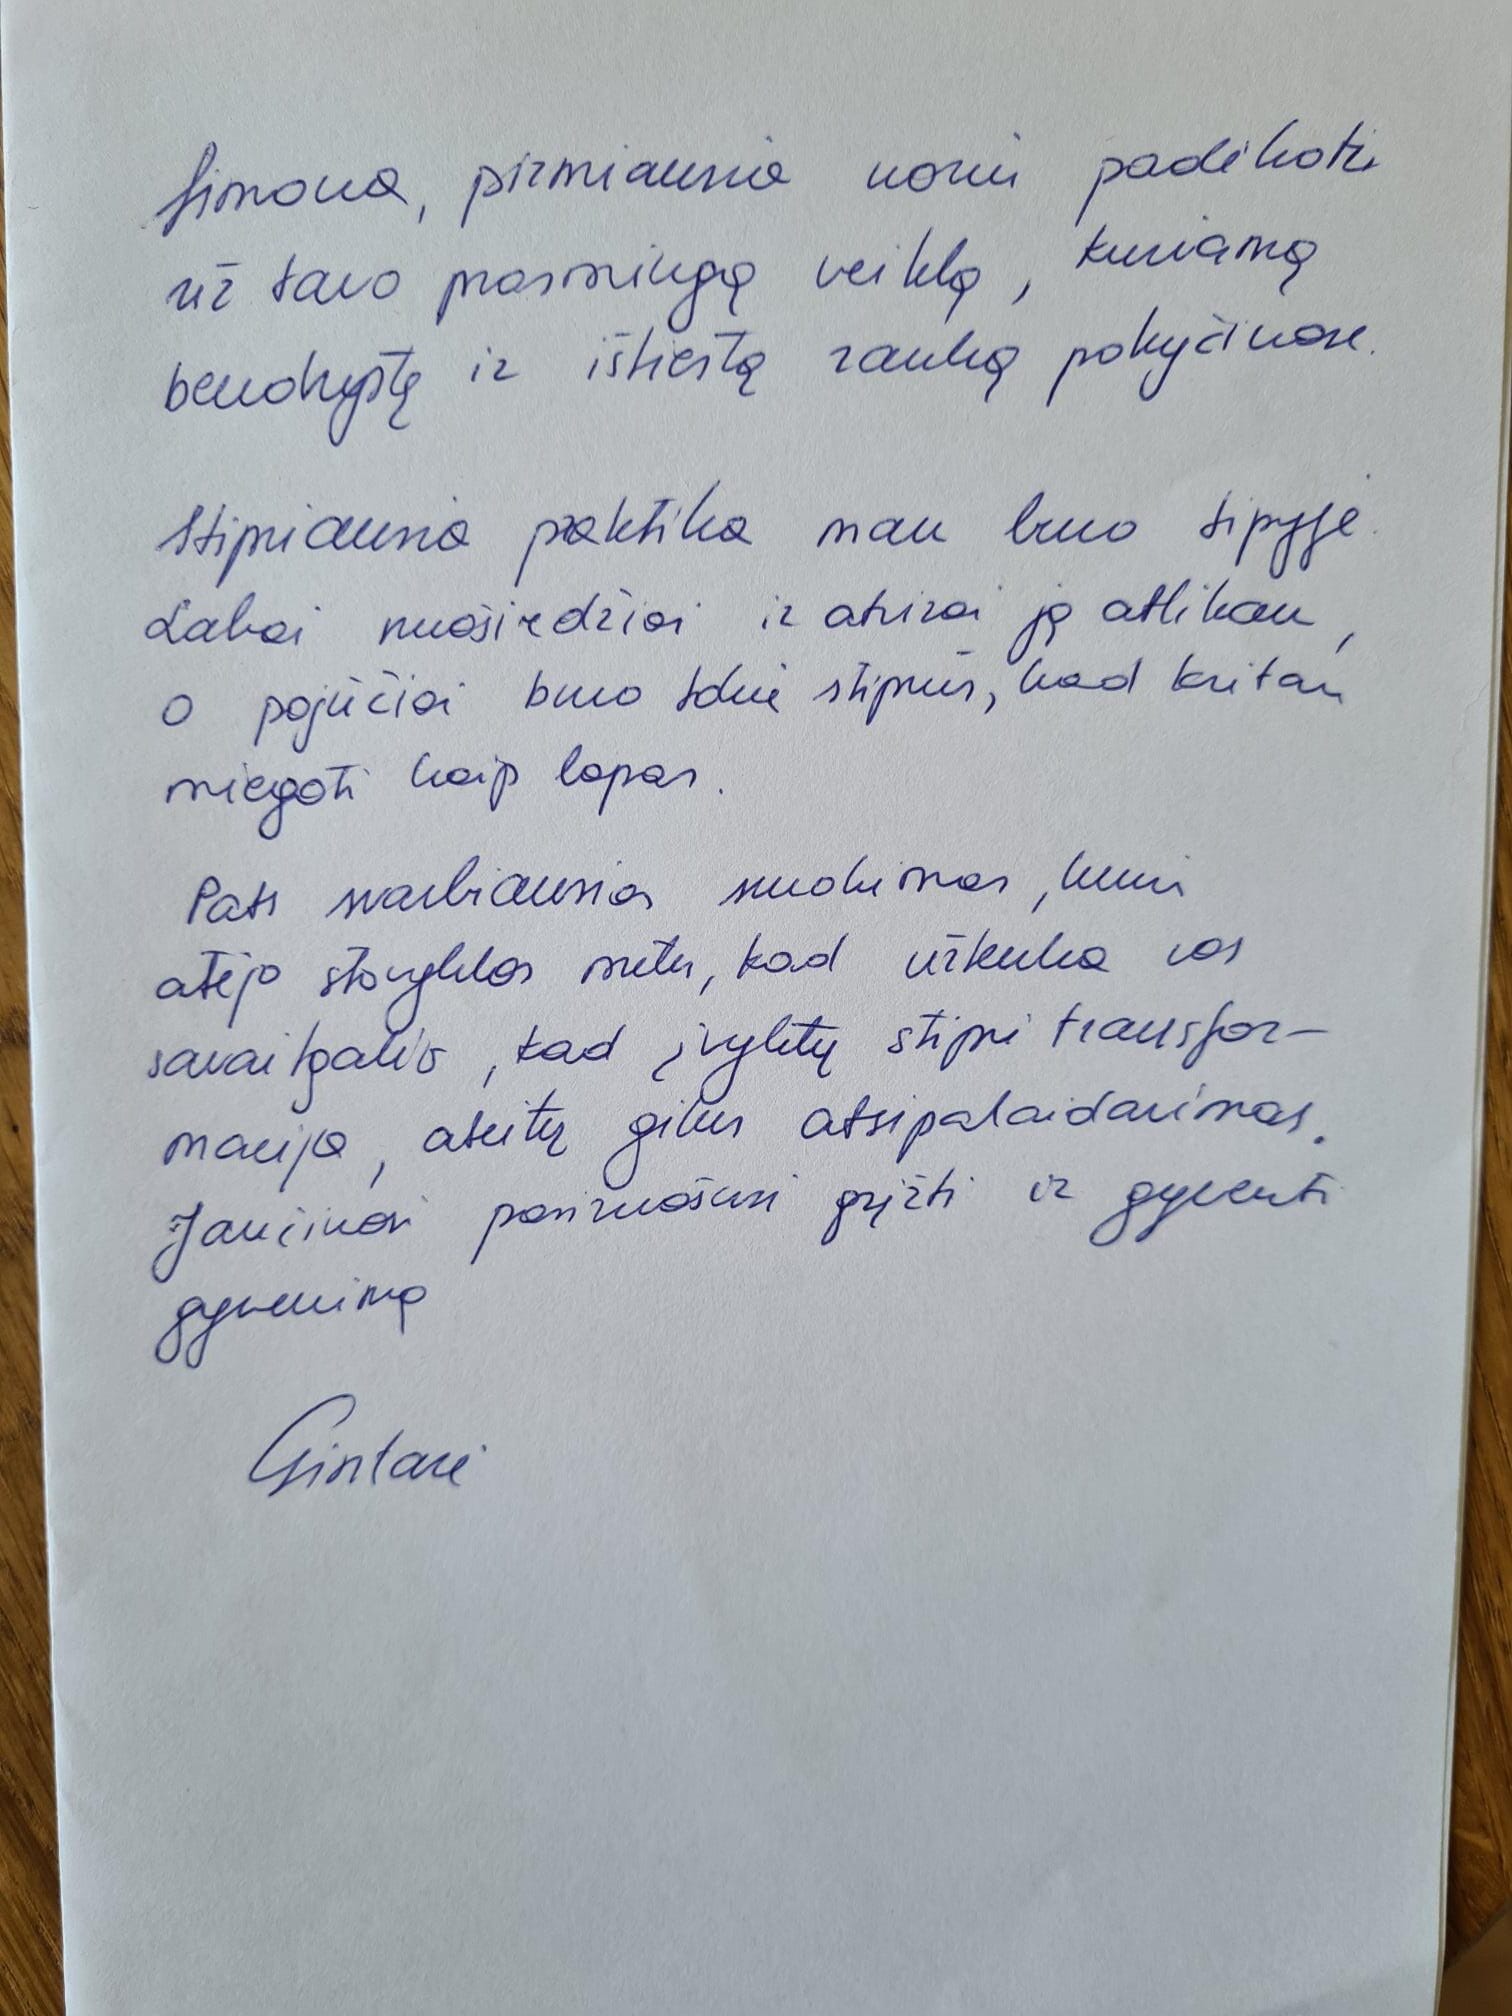 Simona, pirmiausia noriu padėkoti
už tavo prasmingą veiklą, kuriamą
bendrystę ir ištiestą ranką pokyčiuose.
Stipriausia praktika man buvo
Labai nuoširdžiai ir atvirai ją atlikau,
o pojūčiai buvo tokie stiprūs, kad kritau
miegoti kaip lapas.
Pats svarbiausias suvokimas, kuris
atėjo stovyklos metu, kad užtenka vos
savaitgalio, kad įvyktų stipri transfor-
macija, ateitų gilus atsipalaidavimas.
Jaučiuosi pasiruošusi grįžti ir gyventi
gyvenimą
Gintarė